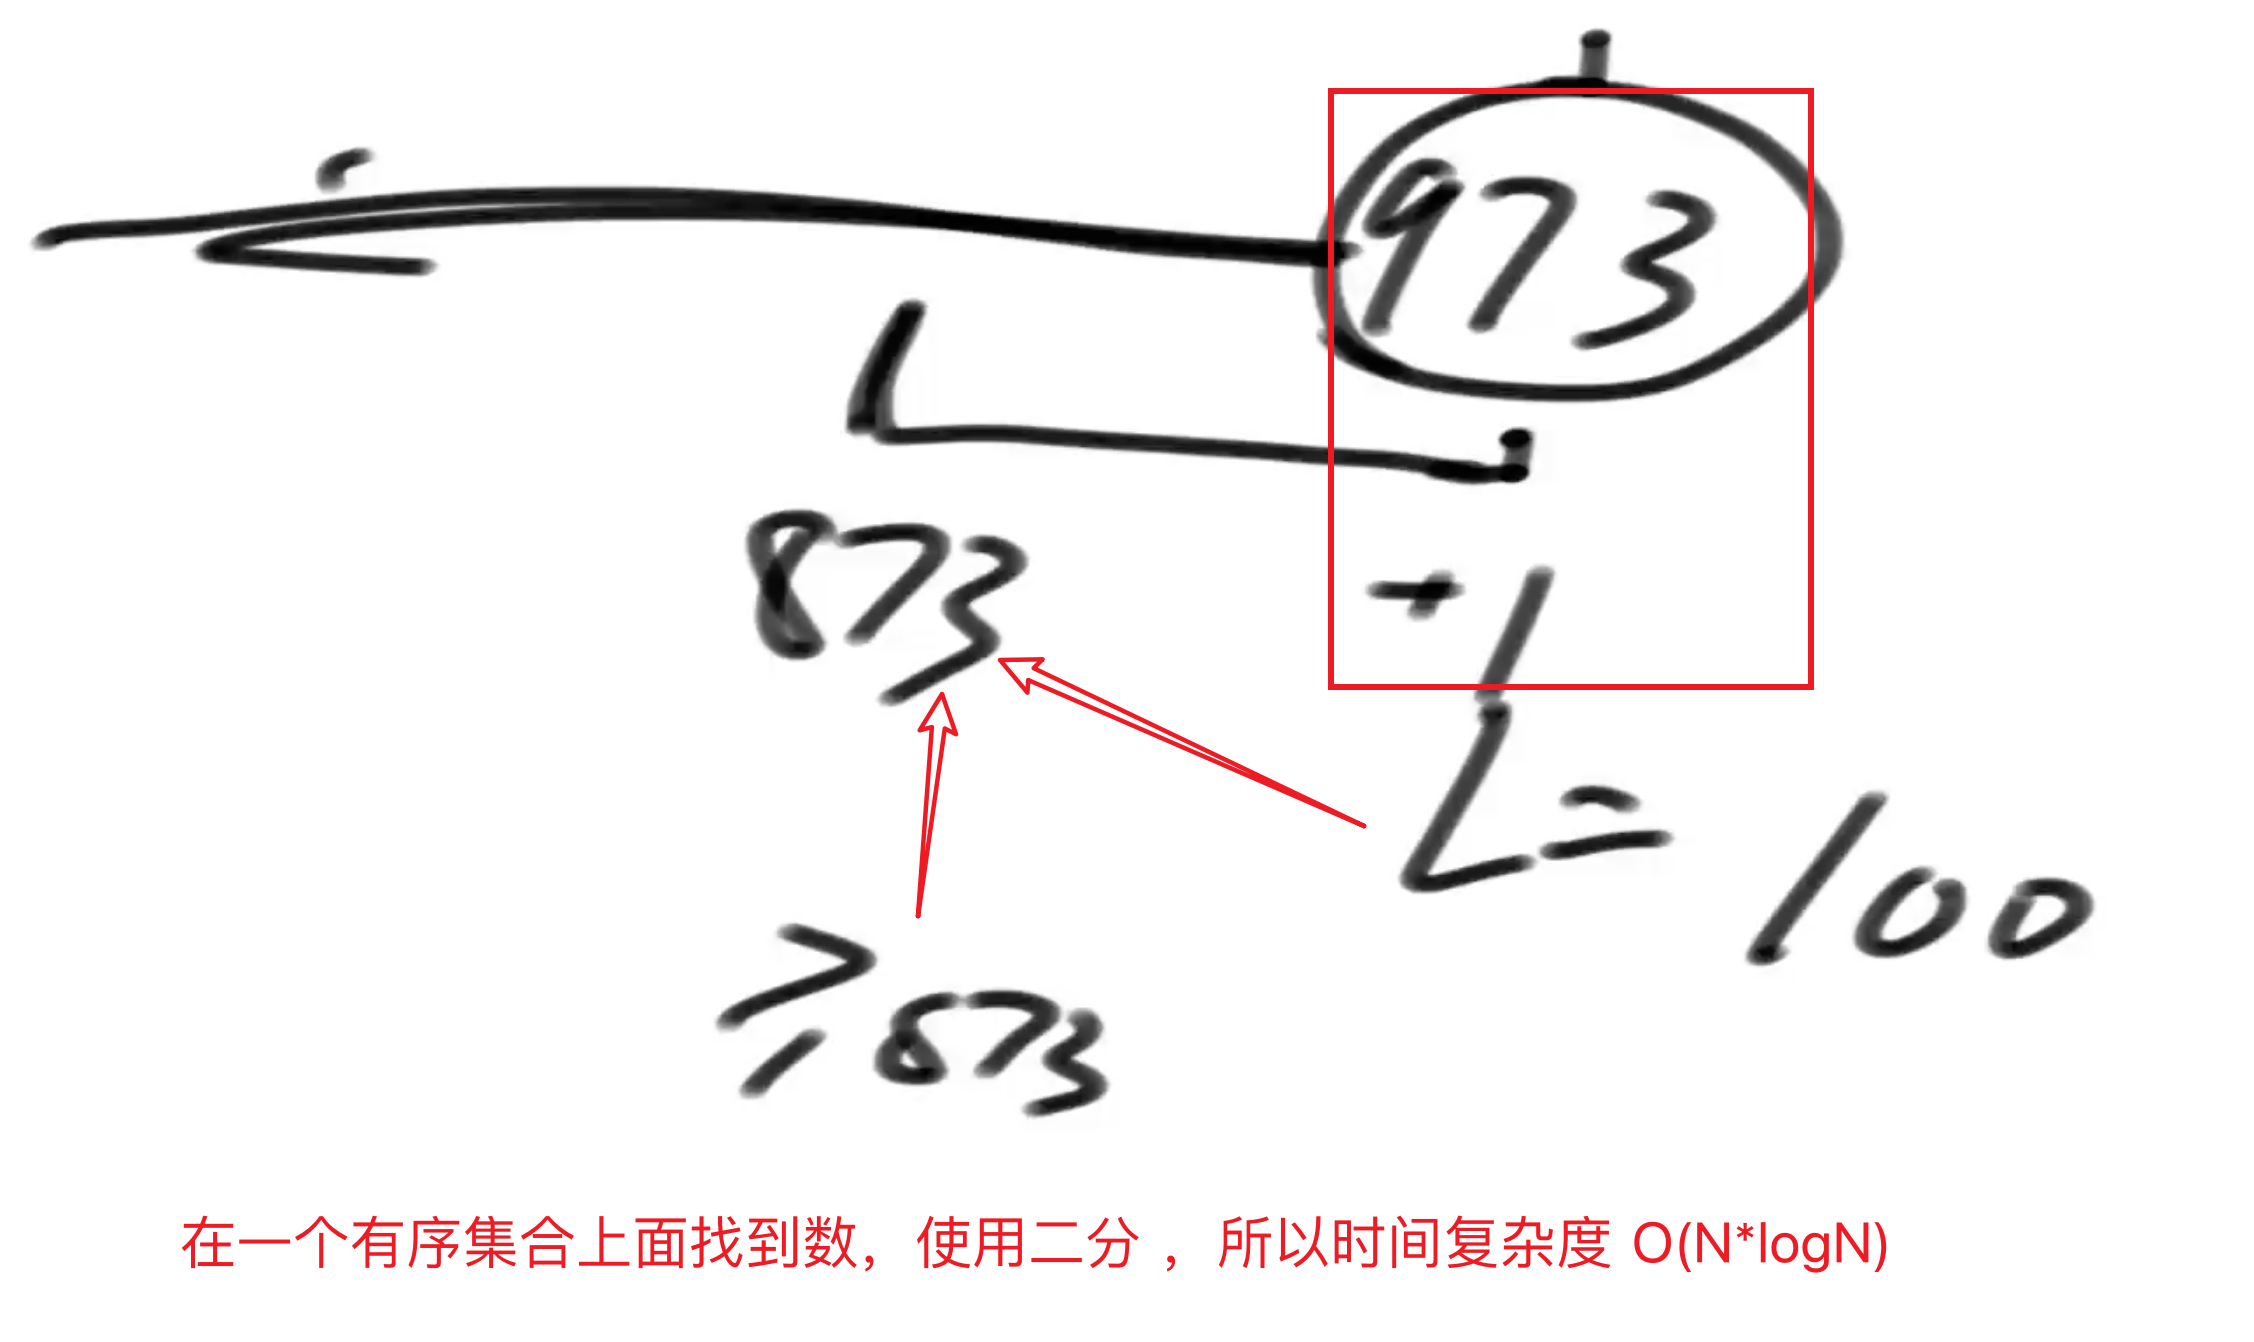 973
873
+1
L=100
≥873
在一个有序集合上面找到数，使用二分 ，所以时间复杂度 O(N*logN)